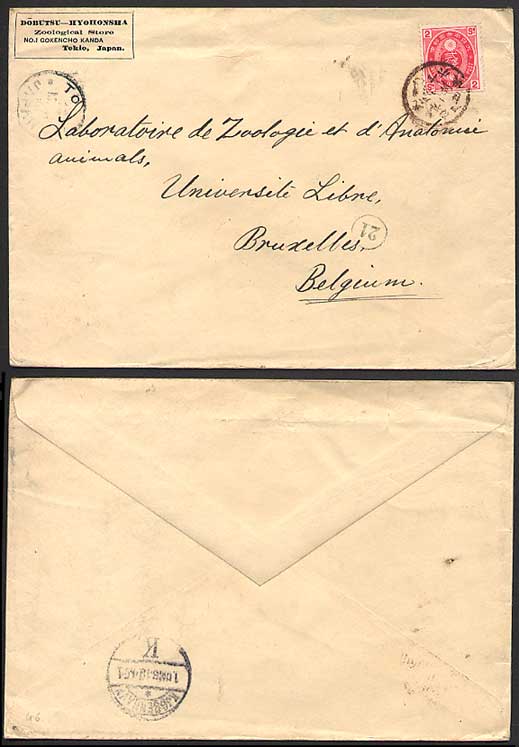 DŌBUTSU—HYOHONSHA
Zoological Store
NO.1 GOKENCHO KANDA
Tokio, Japan.
2 2
TO
Laboratoire de Zoologie et d'Anatomie
animals,
Université Libre,
21
Bruxelles,
Belgium.
K
KJØBENHAVN
46